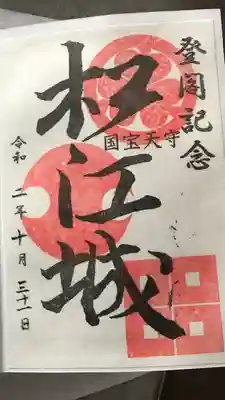 登閣記念
国宝天守
松江城
令和二年十月三十一日